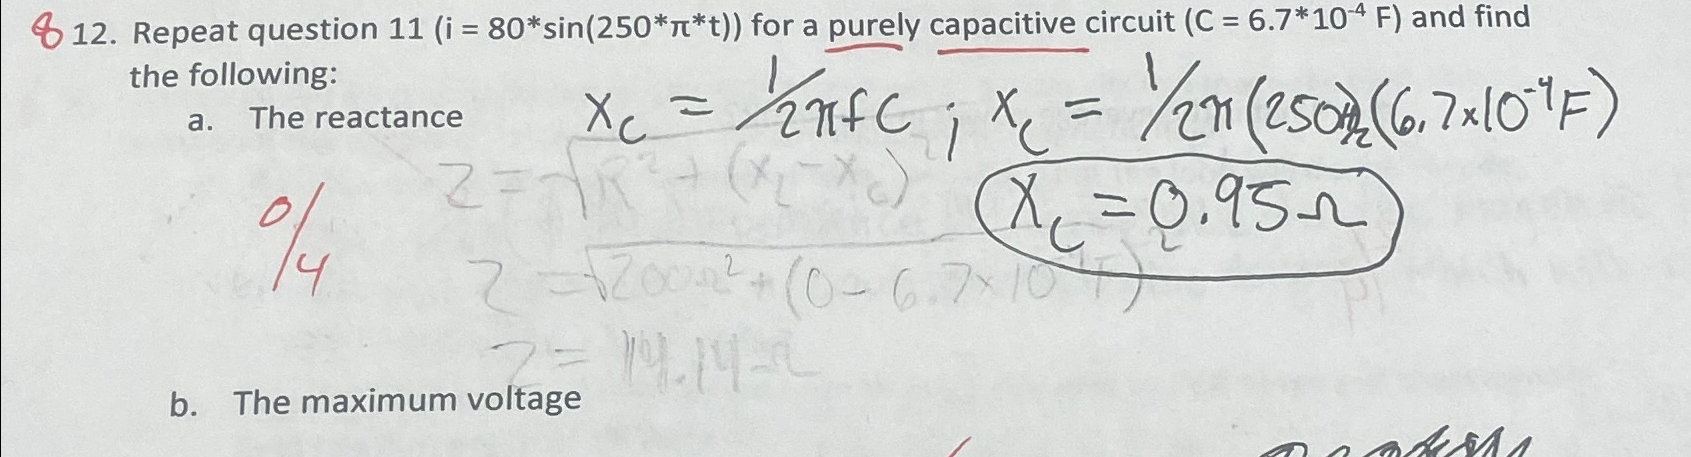 8 12. Repeat question 11 (i = 80*sin(250*π*t)) for a purely capacitive circuit (C = 6.7*10⁻⁴ F) and find
the following:
a. The reactance
X_C = 1/2πfC ; X_C = 1/2π(250Hz)(6.7x10⁻⁴F)
Z = √R² + (X_L - X_C)²
X_C = 0.95Ω
0/4
Z = √200Ω² + (0 - 6.7x10⁻⁴F)²
Z = 14.14Ω
b. The maximum voltage